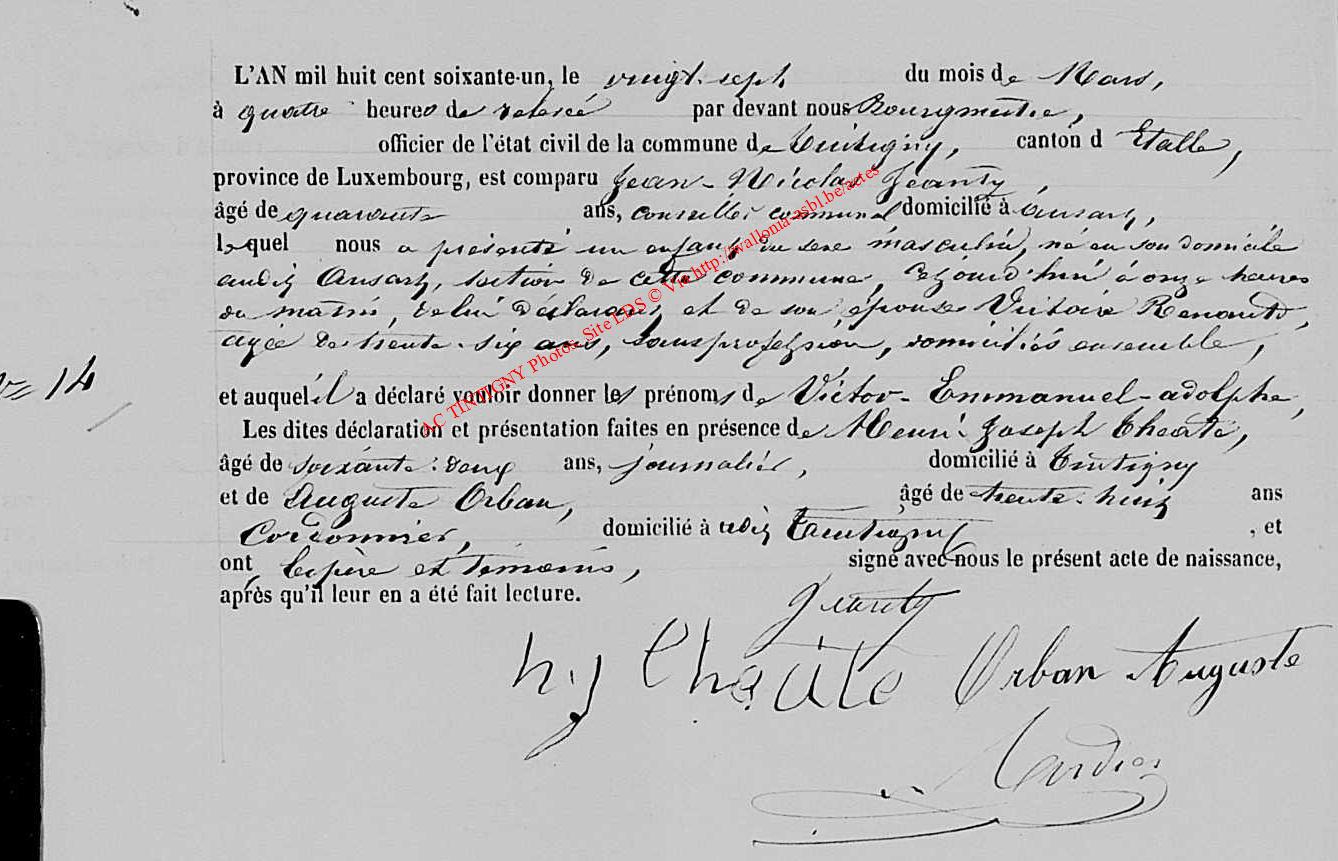 L'AN mil huit cent soixante-un, le vingt-sept du mois de Mars,
à quatre heures de relevée par devant nous Bourgmestre,
officier de l'état civil de la commune de Tintigny, canton d'Etalle,
province de Luxembourg, est comparu Jean-Nicolas Jeanty,
âgé de quarante ans, conseiller communal domicilié à Ansart,
lequel nous a présenté un enfant du sexe masculin, né en son domicile
audit Ansart, section de cette commune, cejourd'hui à onze heures
du matin, de lui déclarant et de son épouse Victoire Renauld,
agée de trente-six ans, sans profession, domiciliés ensemble,
N° 14
et auquel il a déclaré vouloir donner les prénoms de Victor-Emmanuel-adolphe,
Les dites déclaration et présentation faites en présence de Henri-Joseph Theate,
âgé de soixante-deux ans, journalier, domicilié à Tintigny
et de Auguste Orban, âgé de trente-huit ans
Cordonnier, domicilié à audit Tintigny, et
ont le père et témoins, signé avec nous le présent acte de naissance,
après qu'il leur en a été fait lecture.
Jeanty
h.j Theate Orban Auguste
AC TINTIGNY Photos Site LDS © Via http://wallonia-asbl.be/actes